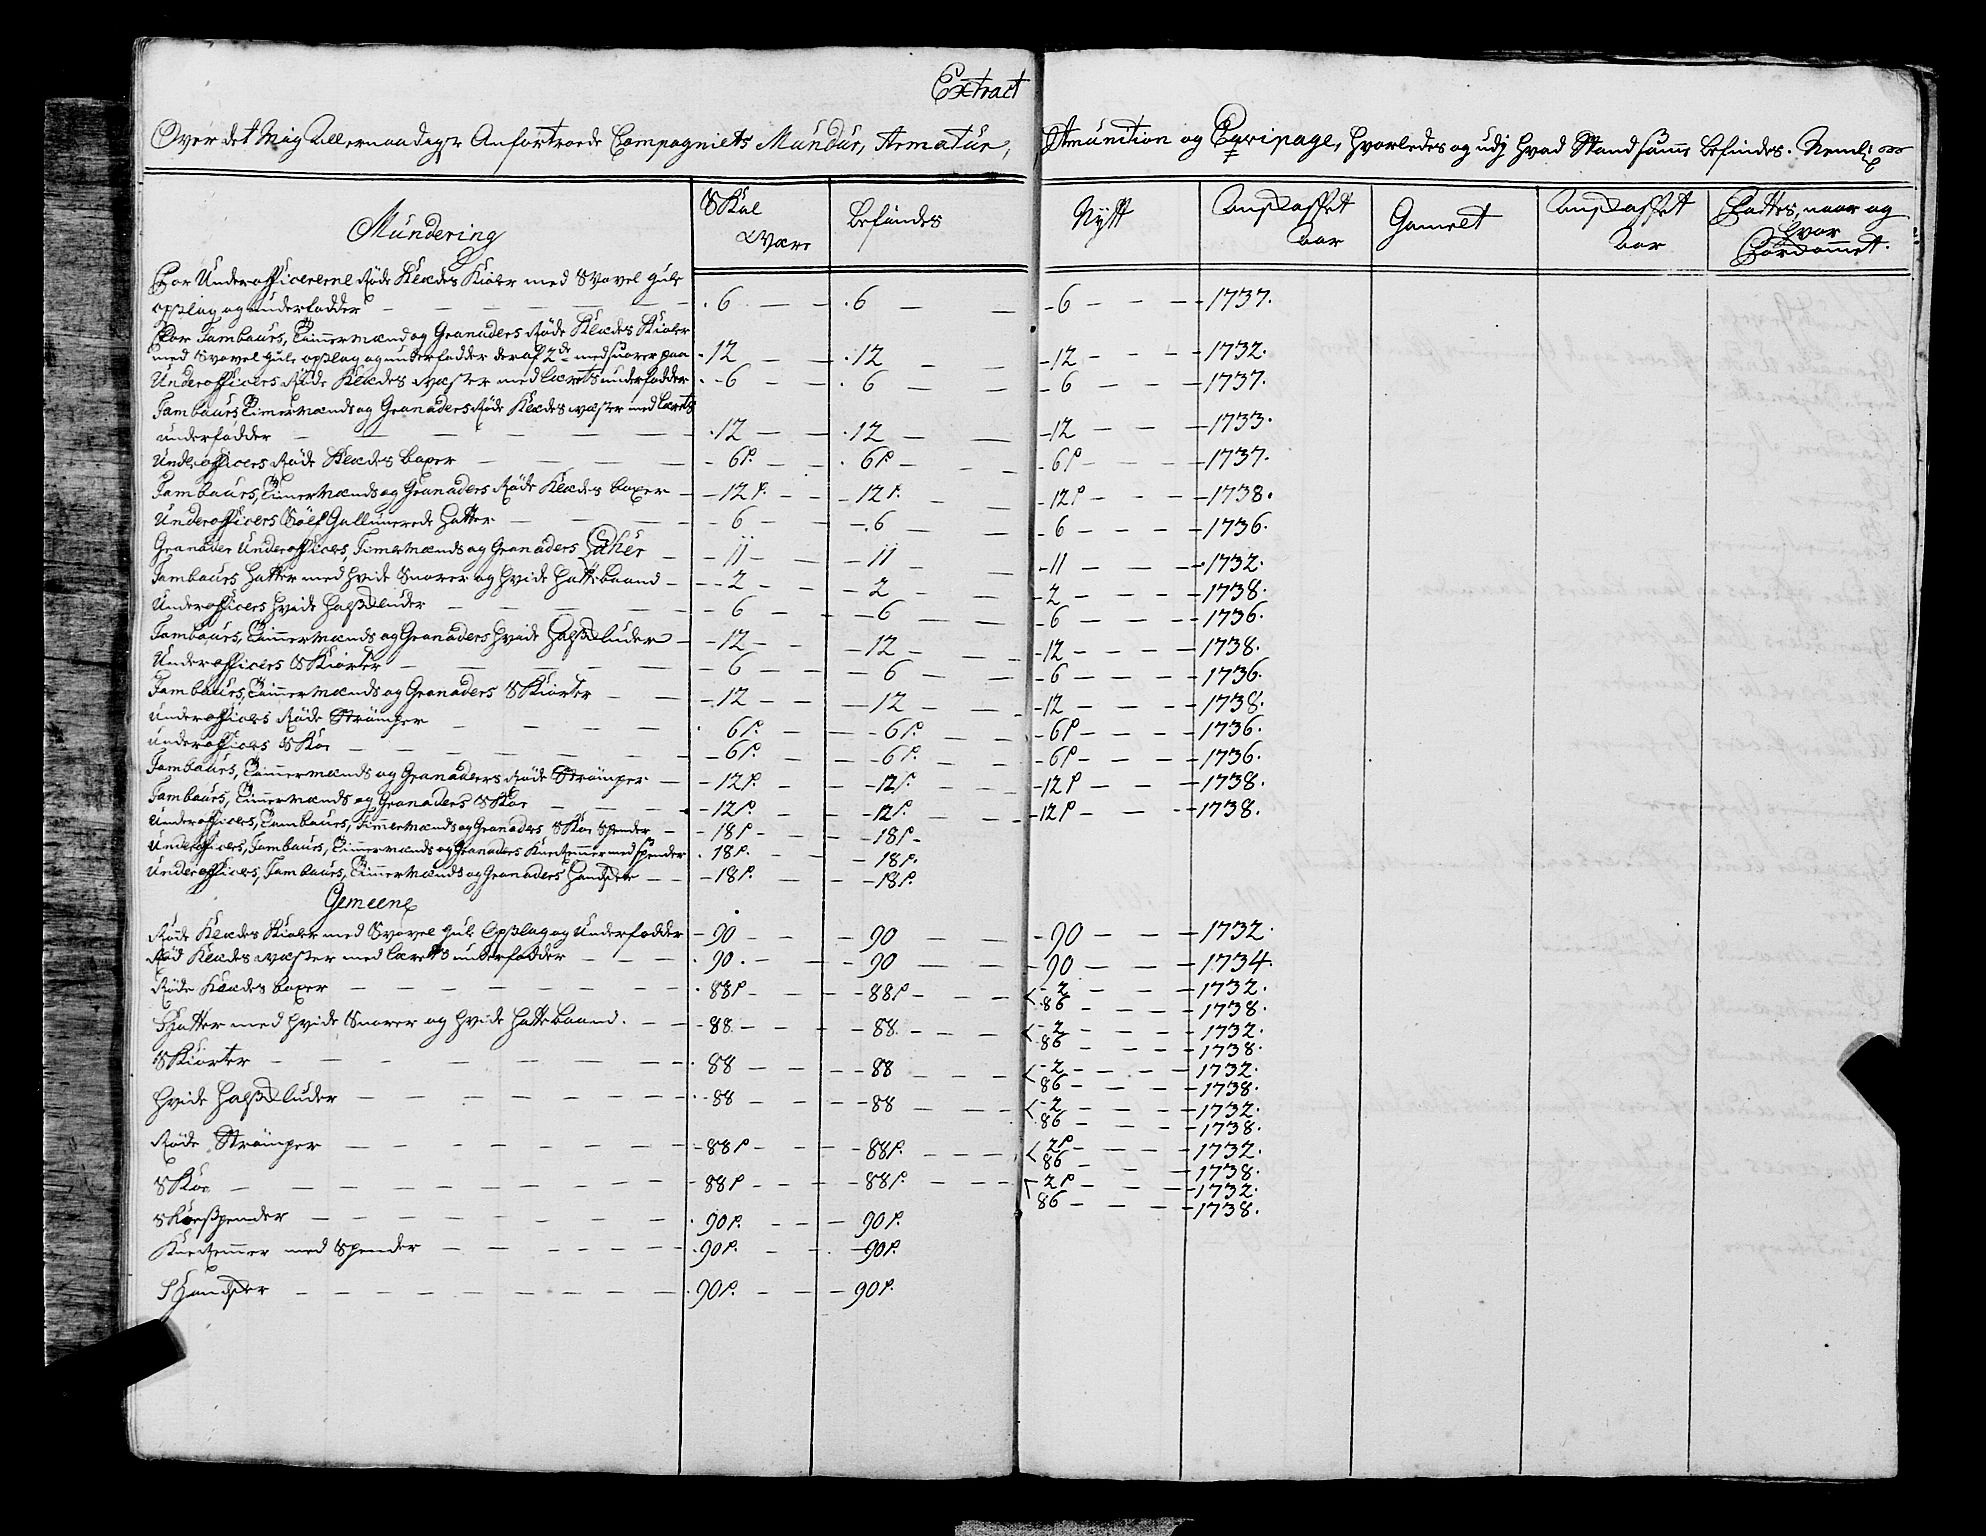 Extract
Over det Mig Allernaadigst Anfortroede Compagniets Mundur, Armatur, Amunition og Equipage, hvorledes og udj hvad Stand samme befindes. Nemlig
Mundering | Skal Være | befindes | Nytt | anskaffet aar | Gamelt | anskaffet aar | Fattes, naar og hvor
For Underofficererne Røde Klædes Kioler med Svovel gule
opslag og underfodder 6 6 6 1737.
For Tambours, Timmermænd og Granaders Røde Klædes Kioler
med Svovel gule opslag og underfodder deraf 2de med snorer paa 12 12 12 1732.
Underofficers Røde Klædes væster med lærets underfodder 6 6 6 1737.
Tambours Timermænds og Granaders Røde Klædes væster med lærets
underfodder 12 12 12 1733.
Underofficers Røde Klædes boxer 6P. 6P 6P 1737.
Tambours, Timermænds og Granaders Røde Klædes boxer 12P. 12P. 12P 1738.
Underofficers Sølf Gallunerede Hatter 6 6 6 1736.
Granader Underofficers, Timermænds og Granaders 11 11 11 1732.
Tambours Hatter med hvide Snorer og hvide Hattebaand 2 2 2 1738.
Underofficers hvide Halskluder 6 6 6 1736.
Tambours, Timmermænds og Granaders hvide Halskluder 12 12 12 1738.
Underofficers Skiorter 6 6 6 1736.
Tambours, Timmermænds og Granaders Skiorter 12 12 12 1738.
Underofficers Røde Strømper 6P. 6P. 6P 1736.
Underofficers Skoe 6P. 6P. 6P 1736.
Tambours, Timmermænds og Granaders Røde Strømper 12P. 12P. 12P 1738.
Tambours, Timmermænds og Granaders Skoe 12P. 12P. 12P 1738.
Underofficers, Tambours, Timmermænds og Granaders Skoe Spender 18P 18P
Underofficers, Tambours, Timmermænds og Granaders Knæremmer med spender 18P. 18P.
Underofficers, Tambours, Timmermænds og Granaders Handsker 18P. 18P.
Gemeene
Røde Klædes Kioler med Svovel gule Opslag og Underfodder 90 90 90 1732.
Rød Klædes væster med lærets underfodder 90. 90 90 1734.
Røde Klædes boxer 88P 88P 2 1732.
86 1738.
Hatter med hvide Snorer og hvide Hattebaand. 88. 88. 2 1732.
86 1738.
Skiorter 88 88 2 1732.
86 1738.
Hvide Halskluder 88 88 2 1732.
86 1738.
Røde Strømper 88P 88P. 2P 1732.
86 1738.
Skoe 88P 88P. 2P 1732.
86 1738.
Skoespender 90P. 90P.
Knæremmer med Spender 90P. 90P.
Handsker 90P. 90P.